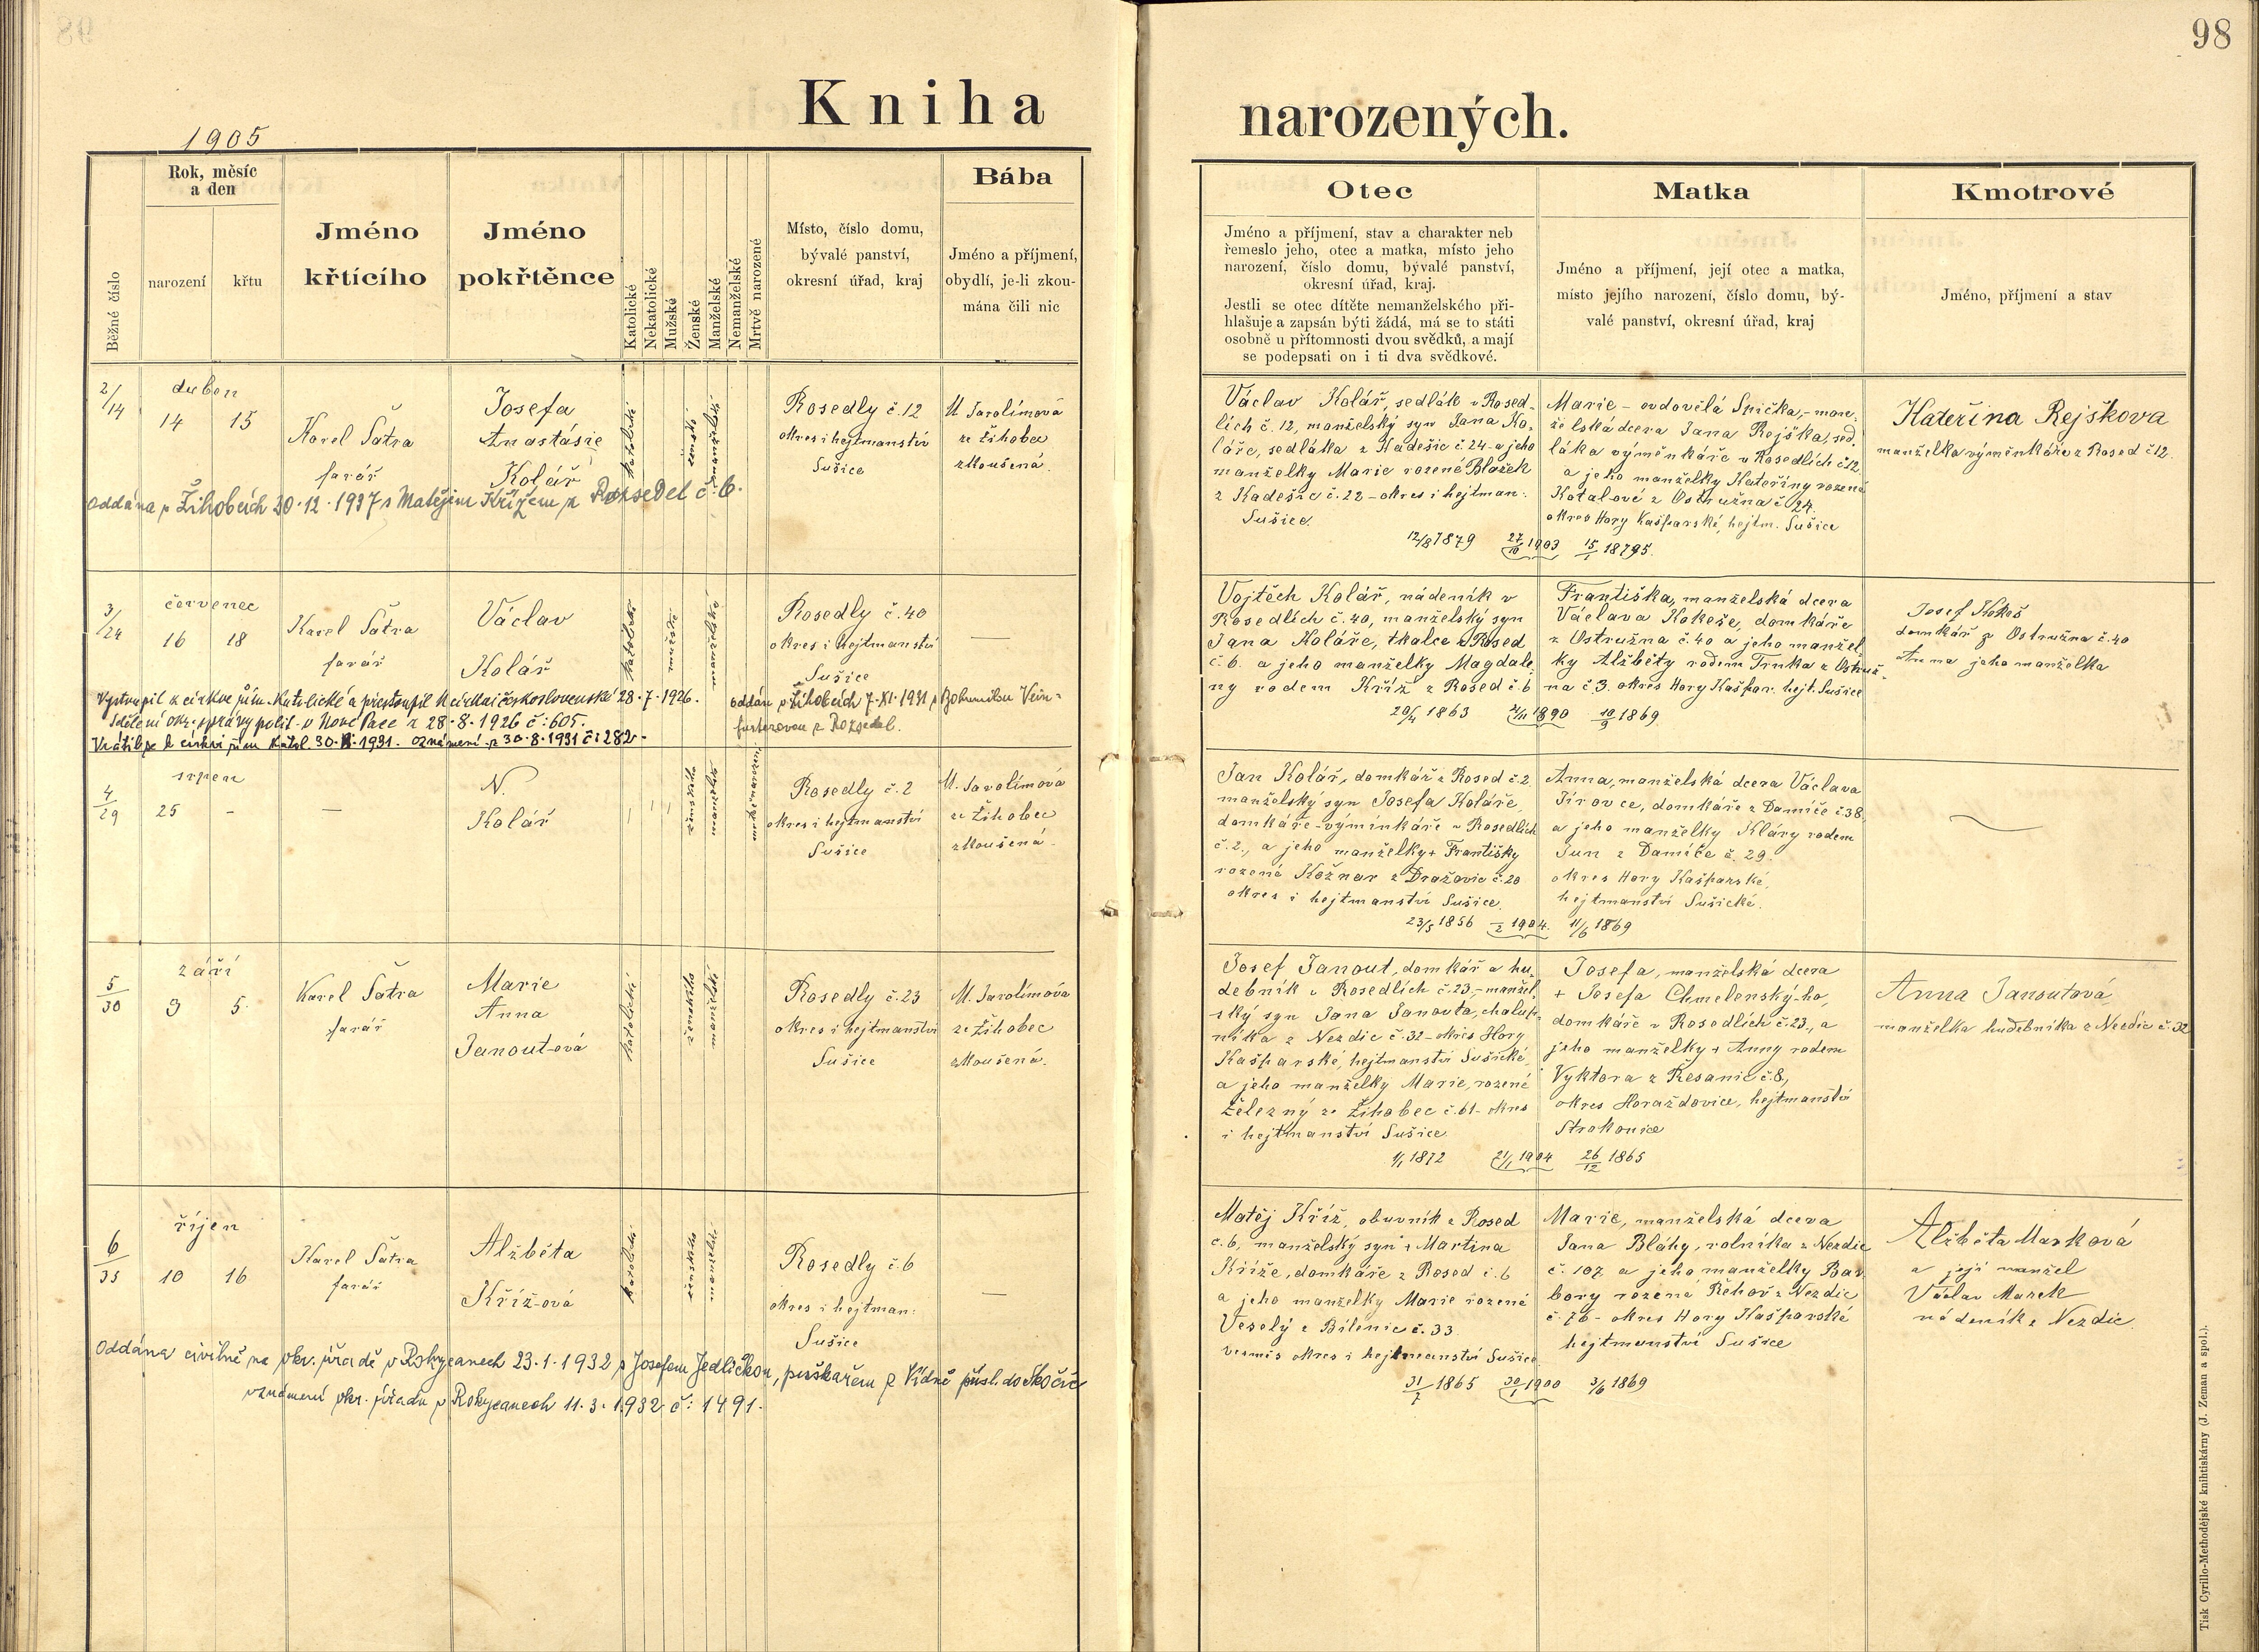 98
Kniha
narozených.
1905
Běžné číslo
Rok, měsíc
a den
narození
křtu
Jméno
křtícího
Jméno
pokřtěnce
Katolické
Nekatolické
Mužské
Ženské
Manželské
Nemanželské
Mrtvě narozené
Místo, číslo domu,
bývalé panství,
okresní úřad, kraj
Bába
Jméno a příjmení,
obydlí, je-li zkou-
mána čili nic
Otec
Jméno a příjmení, stav a charakter neb
řemeslo jeho, otec a matka, místo jeho
narození, číslo domu, bývalé panství,
okresní úřad, kraj.
Jestli se otec dítěte nemanželského při-
hlašuje a zapsán býti žádá, má se to státi
osobně u přítomnosti dvou svědků, a mají
se podepsati on i ti dva svědkové.
Matka
Jméno a příjmení, její otec a matka,
místo jejího narození, číslo domu, bý-
valé panství, okresní úřad, kraj
Kmotrové
Jméno, příjmení a stav
2/14
duben
14 15
Karel Šatra
farář
Josefa
Anastásie
Kolář
katolické
ženské
manželské
Rosedly č. 12
okres i hejtmanství
Sušice
M Jarolímová
ze Žihobec
zkoušená.
Oddána v Žihobcích 30.12.1937 s Matějem Křížem z Rozsedel č. 6.
Václav Kolář, sedlák v Rosed-
lích č. 12, manželský syn Jana Ko-
láře, sedláka z Kadešic č. 24 a jeho
manželky Marie rozené Blažek
z Kadešic č. 22 - okres i hejtman:
Sušice.
12/8 1879 27/10 1903 15/1 18795.
Marie - ovdovělá Snička, - man-
želská dcera Jana Rejška, sed-
láka výměnkáře v Rosedlích č 12
a jeho manželky Kateřiny rozené
Kotalové z Ostružna č 24.
okres Hory Kašparské, hejtm. Sušice
Kateřina Rejškova
manželka výměnkáře z Rosed č 12.
3/24
červenec
16 18
Karel Šatra
farář
Václav
Kolář
katolické
mužské
manželské
Rosedly č. 40
okres i hejtmanství
Sušice
—
Vystoupil z církve řím. katolické a přestoupil k církvi československé 28.7.1926.
Sdělení okr. správy polit. v Nové Pace z 28.8.1926 č: 605.
Vrátil se k církvi řím katol. 30. 1931. oznámení z 30.8.1931 č: 282 -
oddán v Žihobcích 7.XI.1931 s Bohumilou Vein-
furterovou z Rozsedel.
Vojtěch Kolář, nádeník v
Rosedlích č. 40, manželský syn
Jana Koláře, tkalce z Rosed
č. 6. a jeho manželky Magdale-
ny rodem Kříž z Rosed č 6
20/4 1863 21/11 1890 10/9 1869.
Františka, manželská dcera
Václava Kokeše, domkáře
z Ostružna č. 40 a jeho manžel-
ky Alžběty rodem Trnka z Ostruž-
na č 3. okres Hory Kašpar. hejt. Sušice
Josef Kokoš
domkář z Ostružna č. 40
Anna jeho manželka
4/29
srpen
25 -
—
N.
Kolář
ženského
manželské
mrtvě narozené
Rosedly č. 2
okres i hejtmanství
Sušice
M. Jarolímová
ze Žihobec
zkoušená.
Jan Kolář, domkář z Rosed č. 2
manželský syn Josefa Koláře,
domkáře-výminkáře v Rosedlích
č. 2., a jeho manželky + Františky
rozené Kožnar z Dražovic č. 20
okres i hejtmanství Sušice.
23/5 1856 1904. 11/6 1869
Anna, manželská dcera Václava
Jírovce, domkáře z Damíče č. 38,
a jeho manželky Kláry rodem
Jun z Damíče č. 29.
okres Hory Kašparské,
hejtmanství Sušické.
5/30
září
3 5.
Karel Šatra
farář
Marie
Anna
Janout-ová
katolické
ženského
manželské
Rosedly č. 23
okres i hejtmanství
Sušice
M. Jarolímová
ze Žihobec
zkoušená.
Josef Janout, domkář a hu-
debník v Rosedlích č. 23, - manžel-
ský syn Jana Janouta, chalup-
níka z Nezdic č. 32 - okres Hory
Kašparské, hejtmanství Sušické,
a jeho manželky Marie, rozené
Železný ze Žihobec č. 61 - okres
i hejtmanství Sušice.
1/1 1872 21/1 1904 26/12 1865
Josefa, manželská dcera
+ Josefa Chmelenský-ho,
domkáře v Rosedlích č. 23., a
jeho manželky + Anny rodem
Vyktora z Řesanic č. 8,
okres Horažďovice, hejtmanství
Strakonice
Anna Janoutová
manželka hudebníka z Nezdic č. 32
6/35
říjen
10 16
Karel Šatra
farář
Alžběta
Kříž-ová
katolické
ženského
manželské
Rosedly č. 6
okres i hejtman:
Sušice
—
Oddána civilně na okr. úřadě v Rokycanech 23.1.1932 s Josefem Jedličkou, puškařem z Vídně přísl. do Skočic
oznámení okr. úřadu v Rokycanech 11.3.1932 č: 1491.
Matěj Kříž, obuvník z Rosed
č. 6, manželský syn + Martina
Kříže, domkáře z Rosed č. 6
a jeho manželky Marie rozené
Veselý z Bílenic č. 33.
vesměs okres i hejtmanství Sušice.
31/7 1865 30/1 1900 3/6 1869
Marie, manželská dcera
Jana Bláhy, rolníka z Nezdic
č. 107 a jeho manželky Bar-
bory rozené Řehoř z Nezdic
č. 76 - okres Hory Kašparské
hejtmanství Sušice
Alžběta Marková
a její manžel
Václav Marek
nádeník z Nezdic.
Tisk Cyrillo-Methodějské knihtiskárny (J. Zeman a spol.).